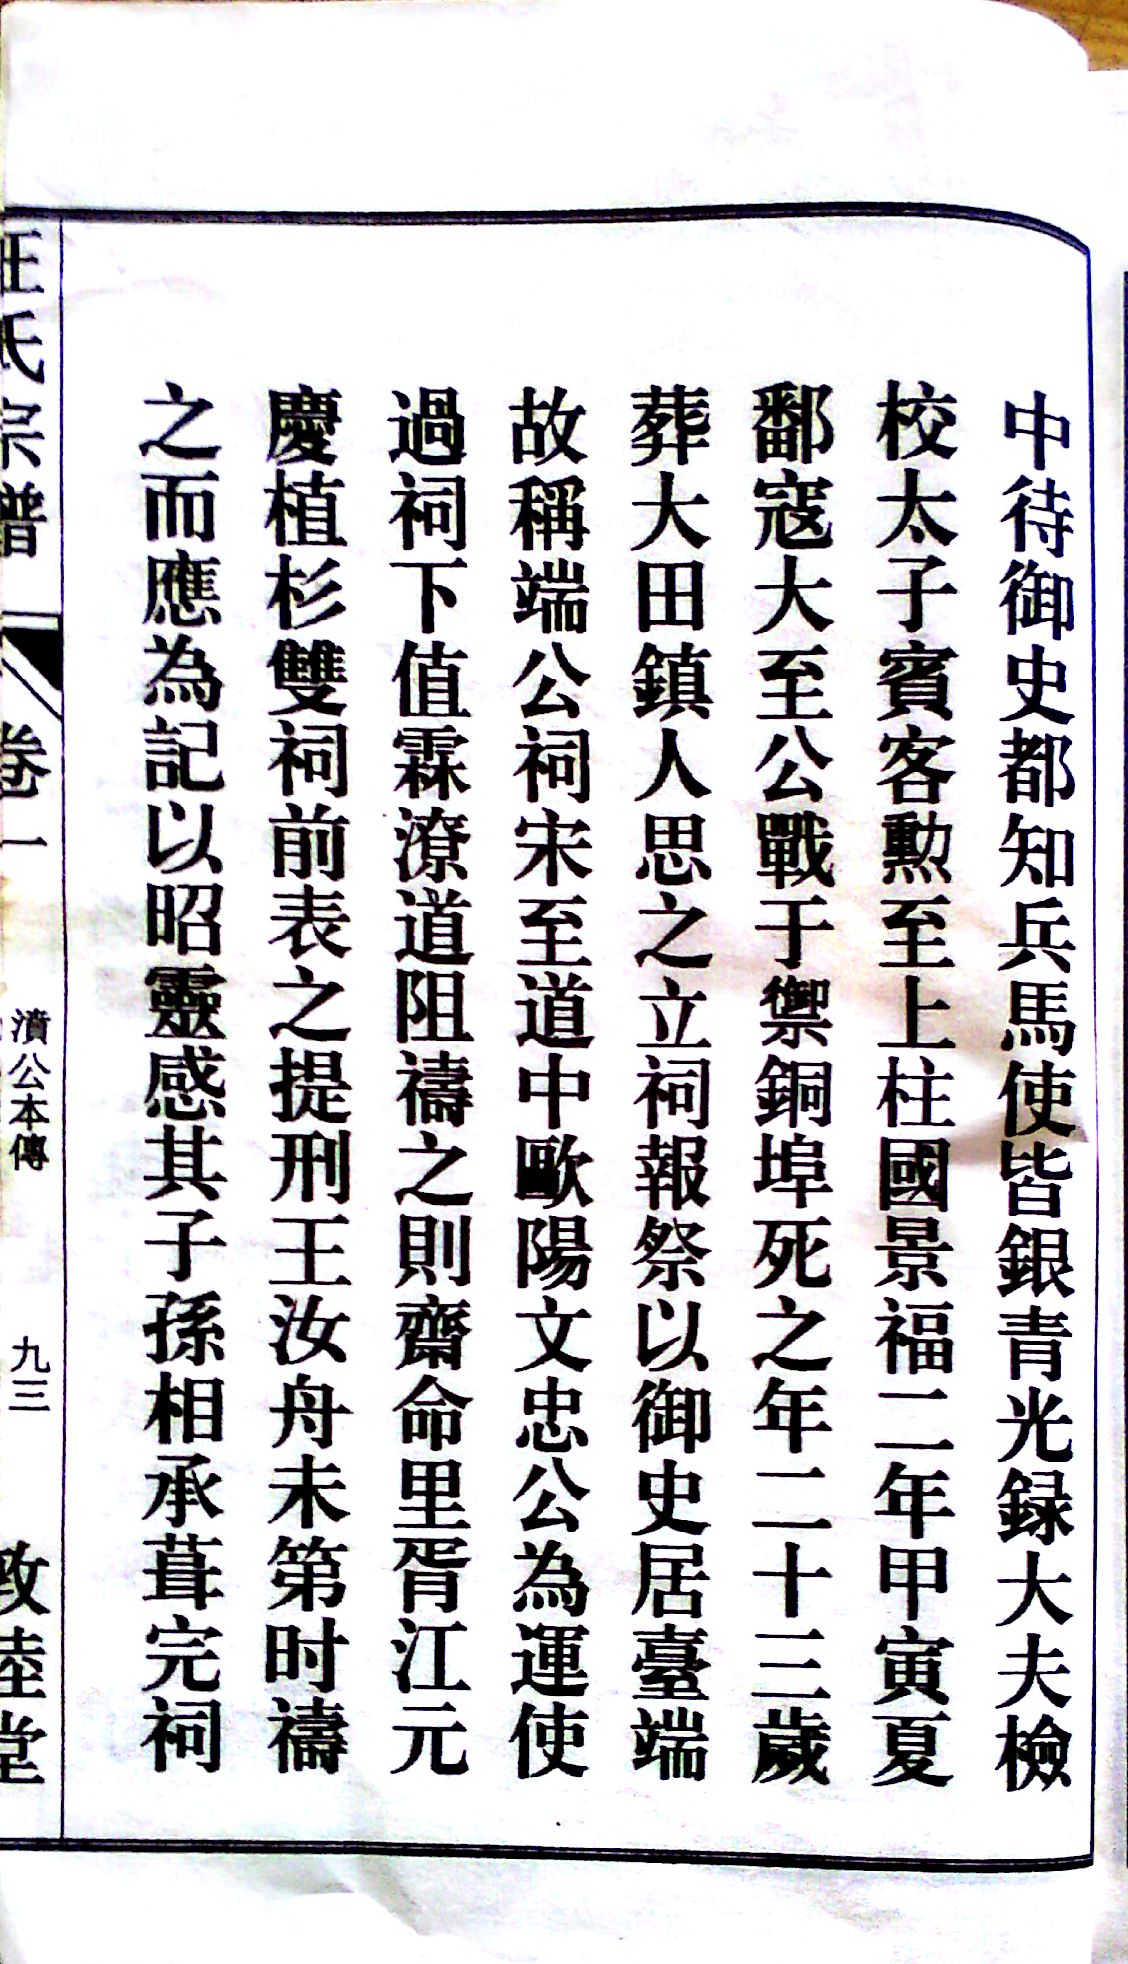 中待御史都知兵馬使皆銀青光録大夫檢
校太子賓客勲至上柱國景福二年甲寅夏
鄱寇大至公戰于禦銅埠死之年二十三歲
葬大田鎮人思之立祠報祭以御史居臺端
故稱端公祠宋至道中歐陽文忠公為運使
過祠下值霖潦道阻禱之則齋命里胥江元
慶植杉雙祠前表之提刑王汝舟未第时禱
之而應為記以昭靈感其子孫相承葺完祠
汪氏宗譜
卷一
濆公本傳
九三
敦睦堂